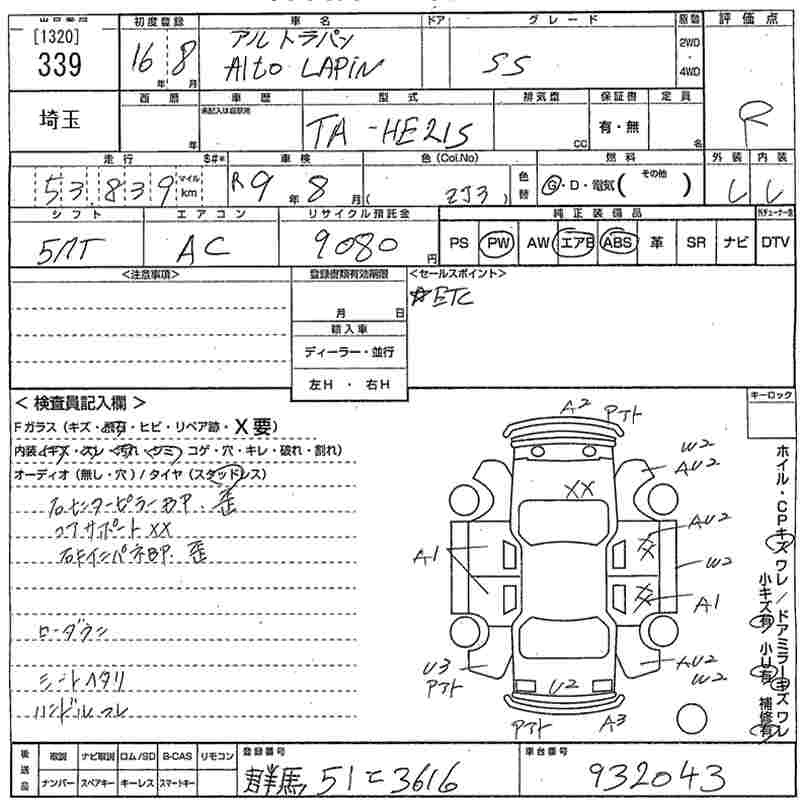 [1320]
339
初度登録 車名 ドア グレード 原動 評価点
16年 8月
アルトラパン
Alto LAPIN
SS
2WD
・
4WD
R
埼玉
西暦 車歴 型式 排気量 保証書 定員
未記入は自家用
年
TA-HE21S
CC
有・無
名
走行 S#* 車検 色(Col.No) 燃料 外装 内装
53,839
マイル
km
R9年 8月( 2J3 )
色替
G・D・電気( その他 )
し し
シフト エアコン リサイクル預託金 純正装備品
5MT AC 9080円
PS PW AW エアB ABS 革 SR ナビ DTV
<注意事項> 登録書類有効期限 <セールスポイント>
月 日
☆ETC
輸入車
ディーラー・並行
左H ・ 右H
キーロック
<検査員記入欄>
Fガラス(キズ・飛石・ヒビ・リペア跡・X要)
内装(キズ・スレ・汚れ・シミ・コゲ・穴・キレ・破れ・割れ)
オーディオ(無し・穴)/タイヤ(スタッドレス)
右センターピラーBP.歪
コアサポートXX
右インパネBP.歪
ローダウン
シートヘタリ
ハンドルスレ
A2 アト
W2
AU2
XX
AU2
XX
W2
A1
XX
A1
U3
アト
AU2
W2
U2
アト
A3
ホイル・CPキズワレ/ドアミラーキズワレ
小キズ有 小U有 補修有
後送品
取説 ナビ取説 ロム/SD B-CAS リモコン
ナンバー スペアキー キーレス スマートキー
登録番号
群馬 51 ニ 3616
車台番号
932043